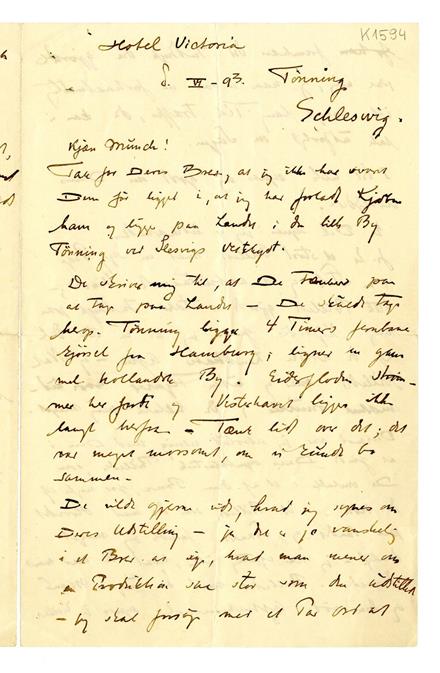 K1594
Hotel Victoria
8. VI - 93. Tönning
Schleswig.
Kjære Munch!
Tak for Deres Brev, at jeg ikke har svaret
Dem før ligger i, at jeg har forladt Kjøben
havn og ligger paa Landet i den lille By
Tönning ved Slesvigs Vestkyst.
De skriver mig til, at De tænker paa
at tage paa Landet – De skulde tage
herop. Tönning ligger 4 Timers Jernbane
Kjörsel fra Hamburg, ligner en gam
mel hollandsk By. Eiderfloden ström-
mer her forbi og Vesterhavet ligger ikke
langt herfra – Tænk lidt over det; det
var meget morsomt, om vi kunde bo
sammen –
De vilde gjerne vide, hvad jeg synes om
Deres Udstilling – ja det er jo vanskelig
i et Brev at sige, hvad man mener om
en Produktion saa stor som den udstillede
– jeg skal forsøge med et Par Ord at